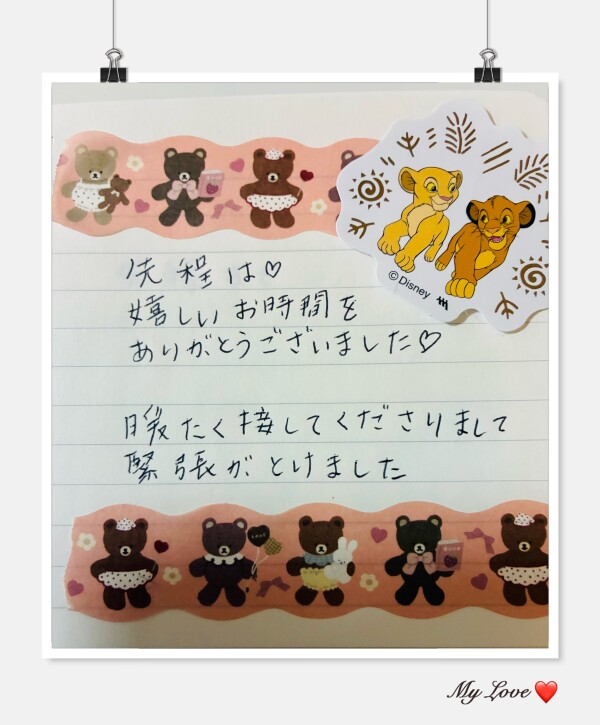 先程は♡
嬉しいお時間を
ありがとうございました♡
暖たく接してくださりまして
緊張がとけました
© Disney
My Love ❤️